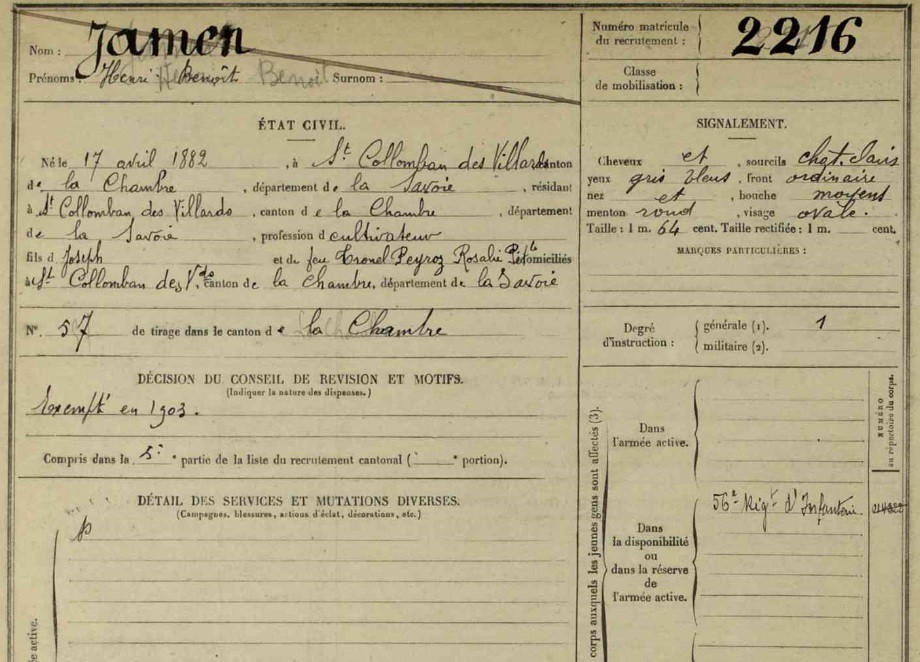 Nom : Jamen
Prénoms : Henri Benoît Surnom :
Numéro matricule du recrutement : 2216
Classe de mobilisation :
ÉTAT CIVIL.
Né le 17 avril 1882, à St Collomban des Villards canton
de la Chambre, département de la Savoie, résidant
à St Collomban des Villards, canton de la Chambre, département
de la Savoie, profession d cultivateur
fils d Joseph et de feu Tronel Peyroz Rosalie domiciliés
à St Collomban des Vds canton de la Chambre, département de la Savoie
N°. 57 de tirage dans le canton de la Chambre
DÉCISION DU CONSEIL DE REVISION ET MOTIFS.
(Indiquer la nature des dispenses.)
Exempté en 1903.
Compris dans la 5e partie de la liste du recrutement cantonal ( e portion).
DÉTAIL DES SERVICES ET MUTATIONS DIVERSES.
(Campagnes, blessures, actions d'éclat, décorations, etc.)
SIGNALEMENT.
Cheveux et, sourcils chat. clairs
yeux gris bleus, front ordinaire
nez et, bouche moyens
menton rond, visage ovale.
Taille : 1 m. 64 cent. Taille rectifiée : 1 m. cent.
MARQUES PARTICULIÈRES :
Degré d'instruction : générale (1). 1
militaire (2).
corps auxquels les jeunes gens sont affectés (3).
Dans l'armée active.
NUMÉRO au répertoire du corps.
Dans la disponibilité ou dans la réserve de l'armée active.
56e Régt d'Infanterie.
ée active.